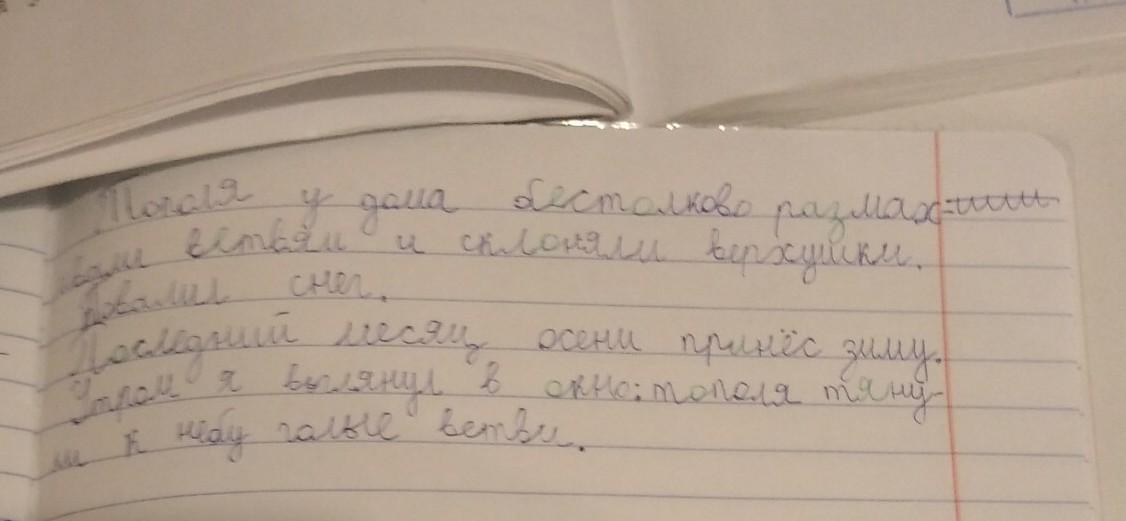 Тополя у дома бестолково размах-
ивали ветвями и склоняли верхушки.
Повалил снег.
Последний месяц осени принёс зиму.
Утром я выглянул в окно: тополя тяну-
ли к небу голые ветви.